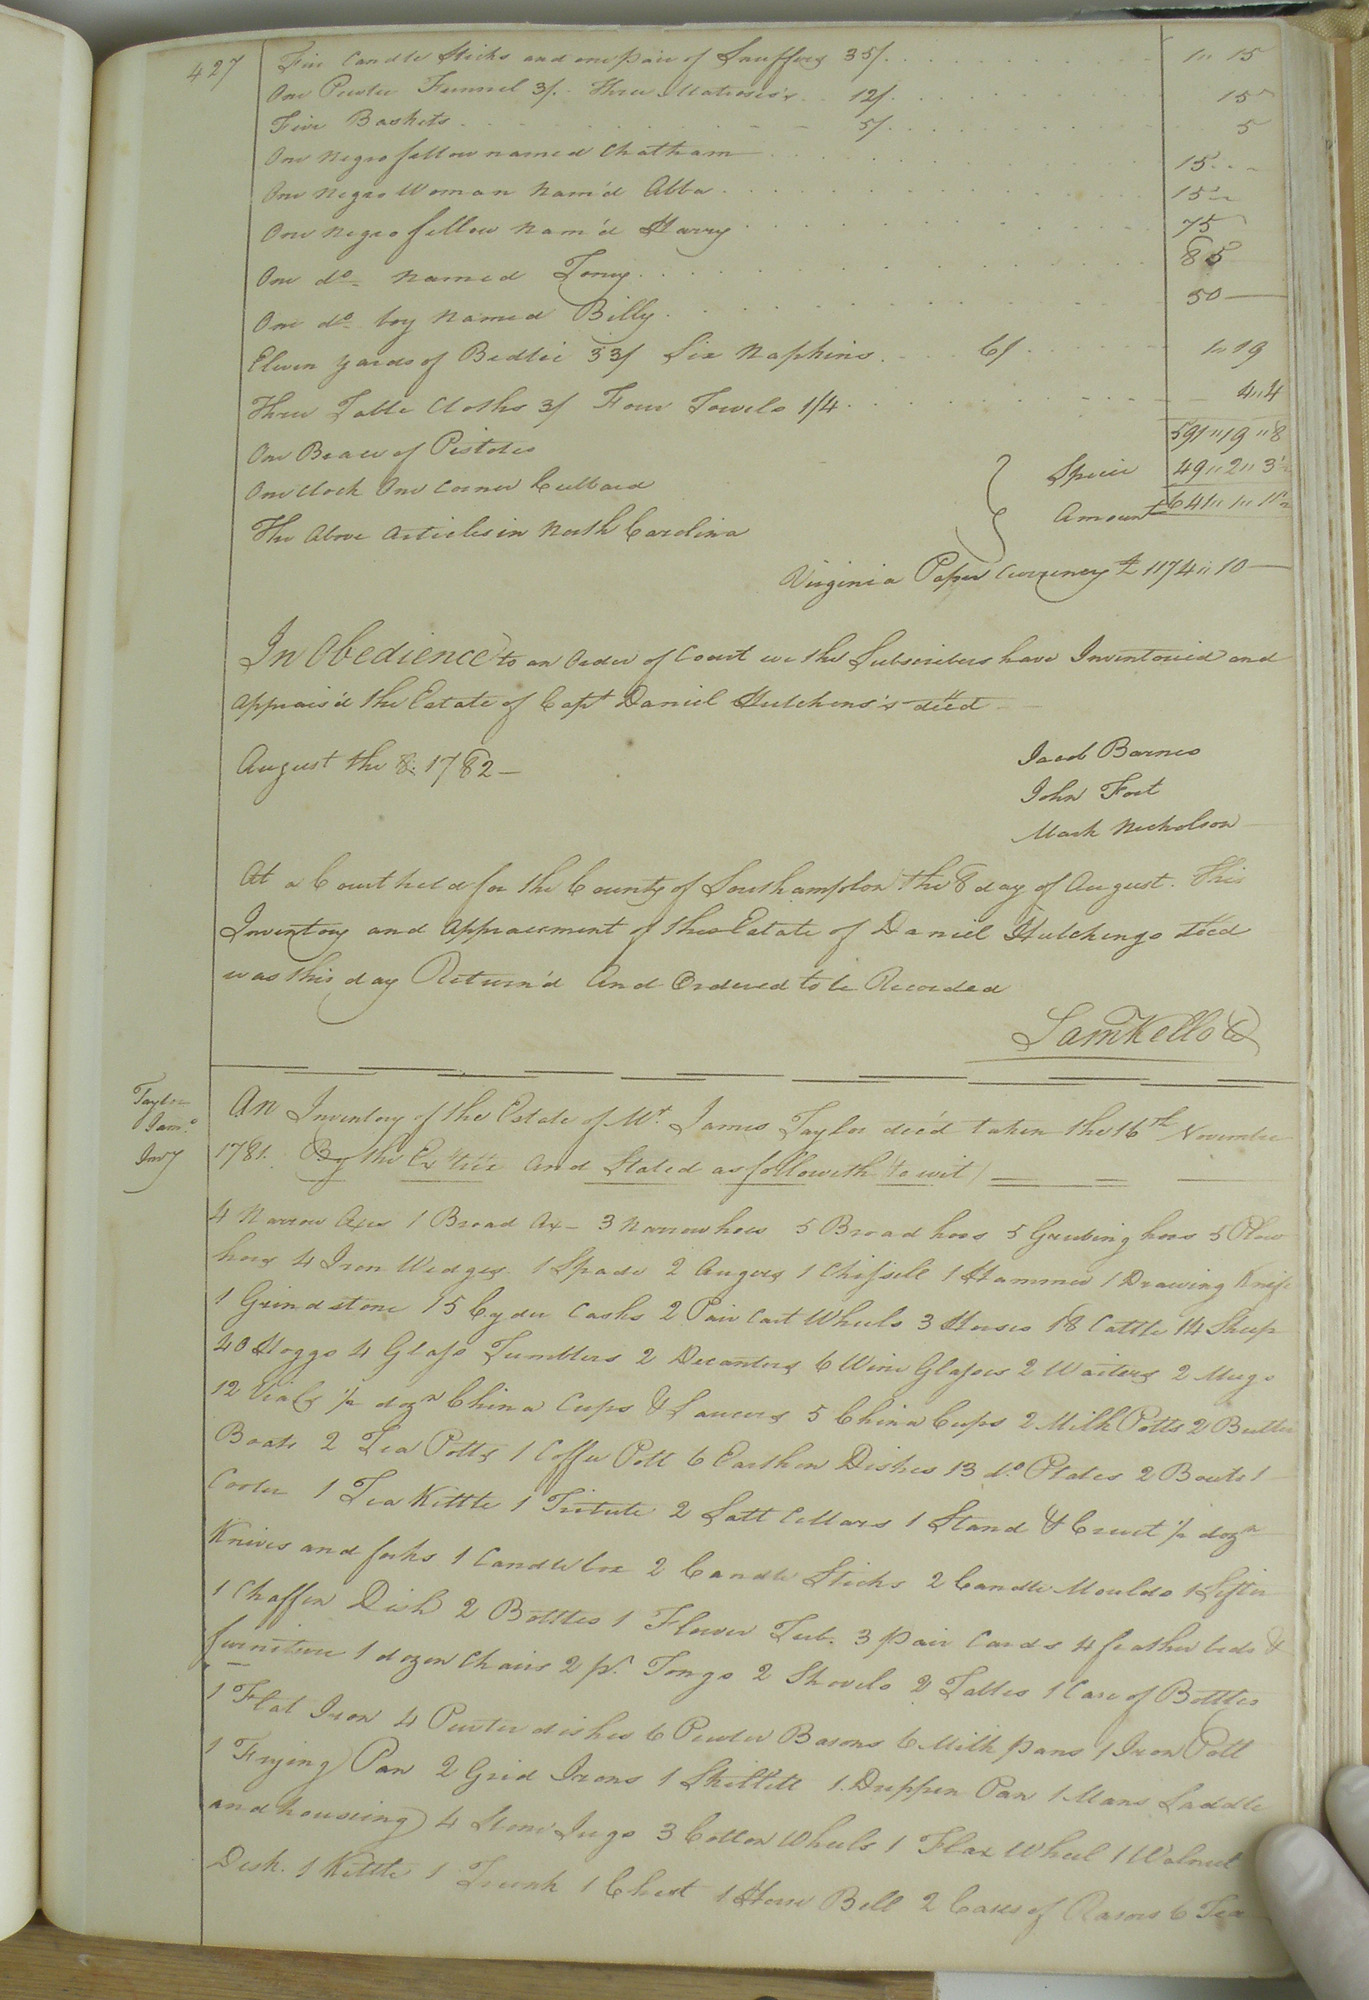 427
Five Candle Sticks and one pair of Snuffers 35/. 1 " 15
One Pewter Funnel 3/. Three Matrass's 12/. 15
Five Baskets 5/. 5
One Negro fellow named Chatham 15
One Negro Woman Nam'd Abba 15
One Negro fellow Nam'd Harry 75
One do. Named Toney 85
One do. boy Named Billy 50
Eleven Yards of Bedtic 33/ Six Napkins 6/ 1 " 19
Three Table Cloths 3/ Four Towels 1/4 4 " 4
591 " 19 " 8
One Brace of Pistoles
One Clock One Corner Cubbard
The Above Articles in North Carolina
Specie 49 " 2 " 3
Amount 641 " 1 " 11
Virginia Paper Currency £ 1174 " 10
In Obedience to an Order of Court we the Subscribers have Inventoried and
Apprais'd the Estate of Capt Daniel Hutchens's dec'd
August the 8: 1782
Jacob Barnes
John Fort
Mark Nicholson
At a Court held for the County of Southampton the 8 day of August. This
Inventory and Appraisment of the Estate of Daniel Hutchings Decd
was this day Return'd And Ordered to be Recorded
Sam Kello
Taylor
Jams.
Invy
An Inventory of the Estate of Mr. James Taylor dec'd taken the 16th November
1781. By the And Stated as followeth (to wit)
4 Narrow Axes 1 Broad Ax 3 Narrow hoes 5 Broad hoes 5 Grubing hoes 5 Plow
hoes 4 Iron Wedges 1 Spade 2 Augers 1 Chissell 1 Hammer 1 Drawing Knife
1 Grindstone 15 Cyder Casks 2 Pair Cart Wheels 3 Horses 18 Cattle 14 Sheep
40 Hoggs 4 Glass Tumblers 2 Decanters 6 Wine Glasses 2 Waiters 2 Mugs
12 Vials ½ dozn China Cups & Saucers 5 China Cups 2 Milk Potts 2 Butter
Boats 2 Tea Potts 1 Coffee Pott 6 Earthen Dishes 13 do. Plates 2 1
Cooler 1 Tea Kittle 1 2 Salt Cellars 1 Stand & Cruet ½ dozn
Knives and forks 1 Candlebox 2 Candle Sticks 2 Candle Moulds 1 Sifter
1 Chaffen Dish 2 Bottles 1 Flower Tub. 3 pair Cards 4 feather beds &
furniture 1 dozen Chairs 2 pr. Tongs 2 Shovels 2 Tables 1 Case of Bottles
1 Flat Iron 4 Pewter dishes 6 Pewter Basons 6 Milk pans 1 Iron Pott
1 Frying Pan 2 Grid Irons 1 Skillett 1. Drippen Pan 1 Mans Saddle
and houseing 4 Stone Jugs 3 Cotton Wheels 1 Flax Wheel 1 Walnut
Desk. 1 Kittle 1 Trunk 1 Chest 1 Horse Bell 2 Cases of Rasors 6 Tea